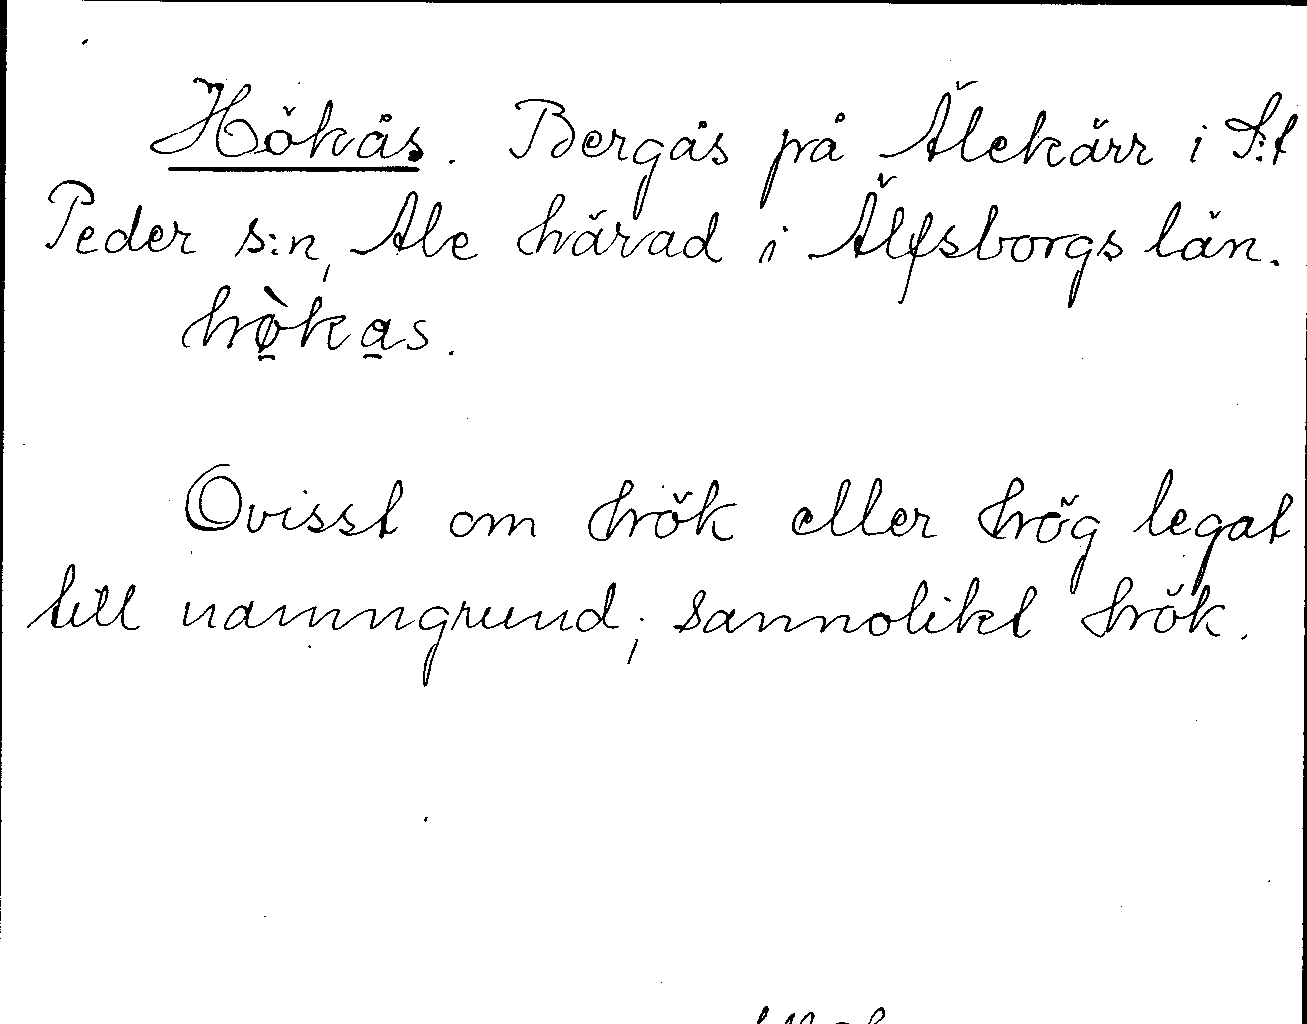 Hökås. Bergås på Älekärr i S:t
Peder s:n, Ale härad i Älfsborgs län.
hø̀kas.
Ovisst om hök eller hög legat
till namngrund; sannolikt hök.